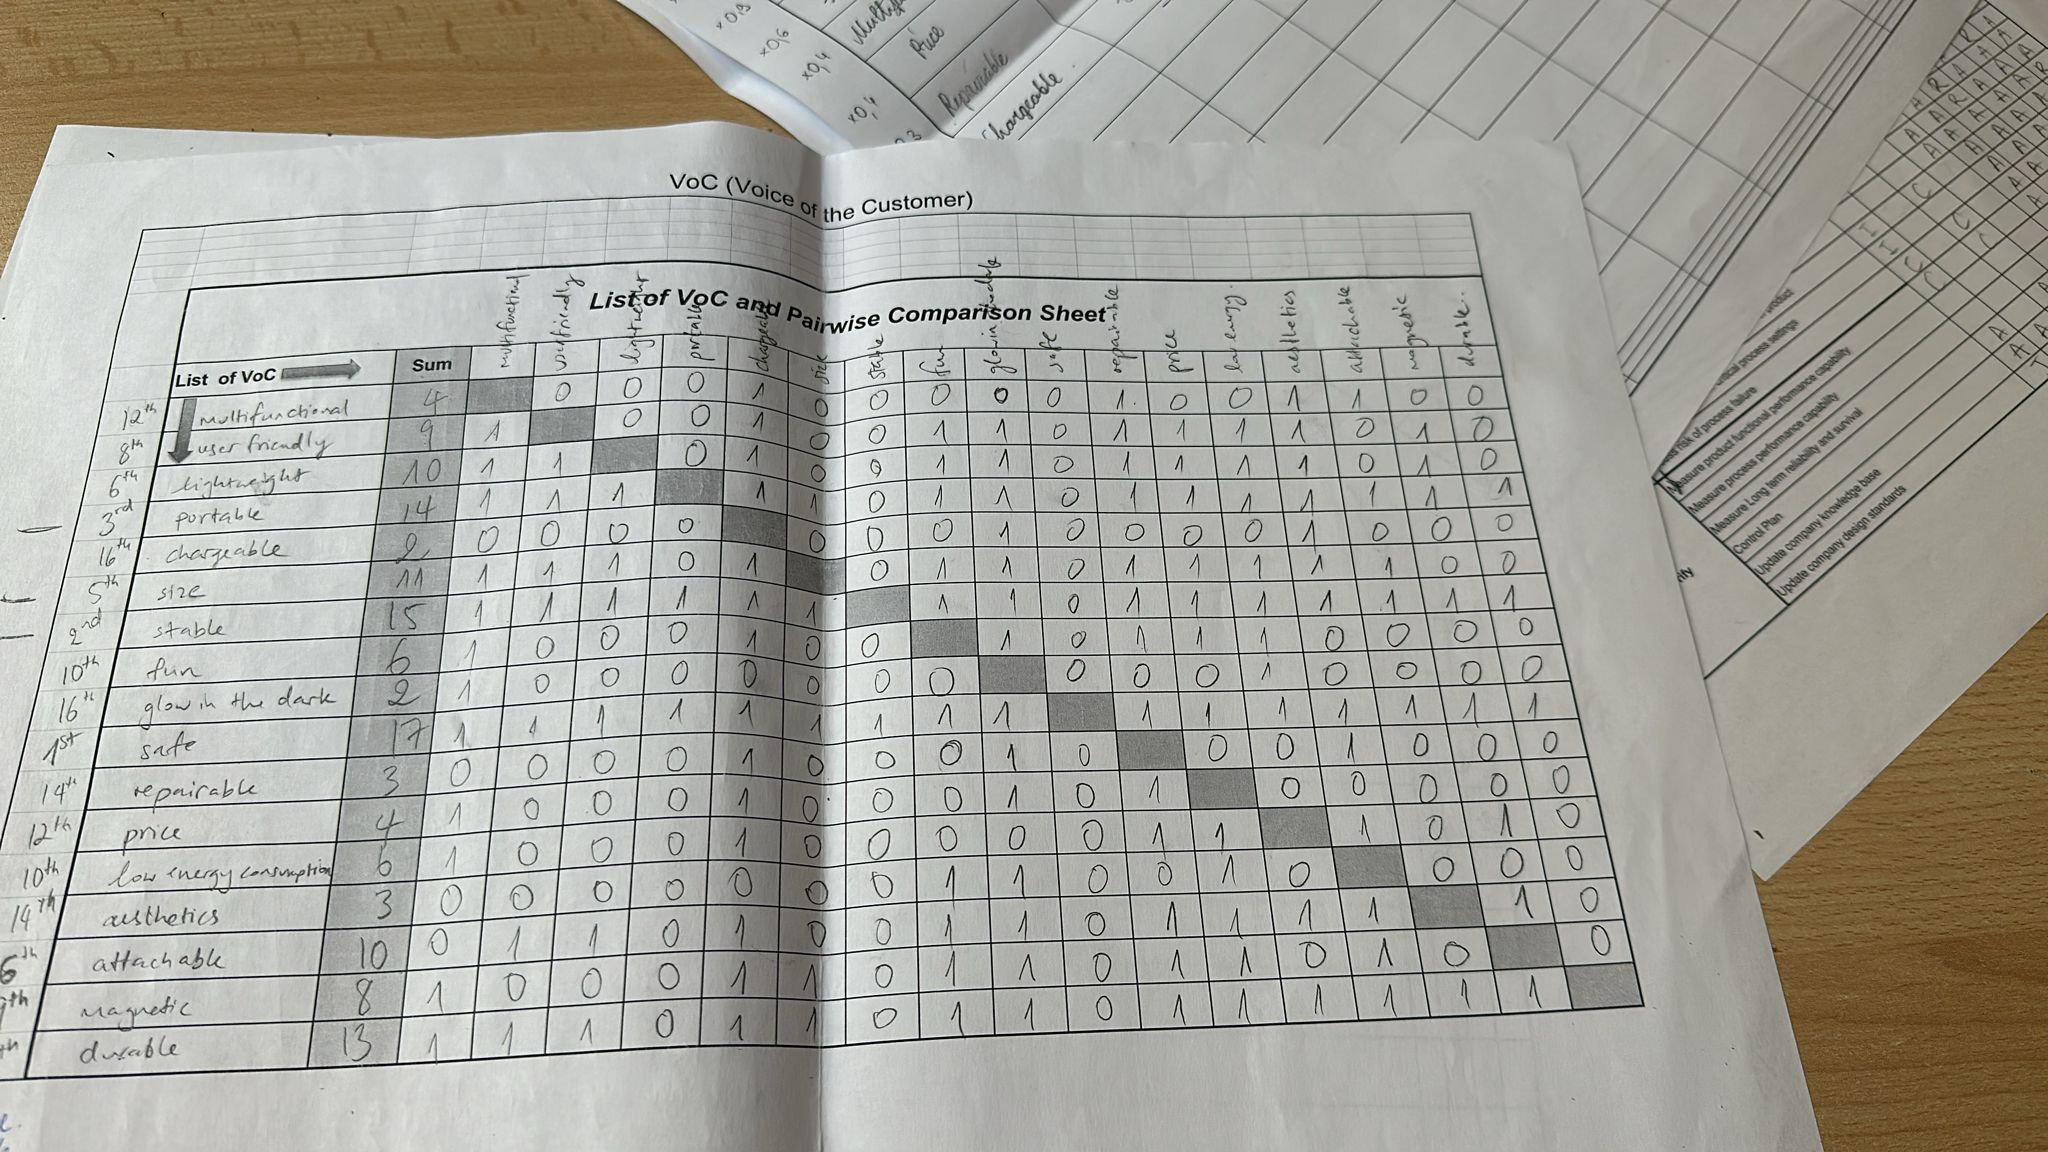 ×0,6
×0,4
×0,4
Price
Repairable
Chargeable.
VoC (Voice of the Customer)
List of VoC and Pairwise Comparison Sheet
List of VoC Sum multifunctional user friendly lightweight portable chargeable size stable fun glow in the dark safe repairable price low energy. aesthetics attachable magnetic durable.
12th multifunctional 4 0 0 0 1 0 0 0 0 0 1. 0 0 1 1 0 0
8th user friendly 9 1 0 0 1 0 0 1 1 0 1 1 1 1 0 1 0
6th lightweight 10 1 1 0 1 0 0 1 1 0 1 1 1 1 0 1 0
3rd portable 14 1 1 1 1 0 1 1 0 1 1 1 1 1 1 1
16th chargeable 2 0 0 0 0 0 0 0 1 0 0 0 0 1 0 0 0
5th size 11 1 1 1 0 1 0 1 1 0 1 1 1 1 1 0 0
2nd stable 15 1 1 1 1 1 1 1 1 0 1 1 1 1 1 1 1
10th fun 6 1 0 0 0 1 0 0 1 0 1 1 1 0 0 0 0
16th glow in the dark 2 1 0 0 0 0 0 0 0 0 0 0 1 0 0 0 0
1st safe 17 1 1 1 1 1 1 1 1 1 1 1 1 1 1 1 1
14th repairable 3 0 0 0 0 1 0 0 0 1 0 0 0 1 0 0 0
12th price 4 1 0 0 0 1 0 0 0 1 0 1 0 0 0 0 0
10th low energy consumption 6 1 0 0 0 1 0 0 0 0 0 1 1 1 0 1 0
14th aesthetics 3 0 0 0 0 0 0 0 1 1 0 0 1 0 0 0 0
6th attachable 10 0 1 1 0 1 0 0 1 1 0 1 1 1 1 1 0
magnetic 8 1 0 0 0 1 1 0 1 1 0 1 1 0 1 0 0
durable 13 1 1 1 0 1 1 0 1 1 0 1 1 1 1 1 1
product
process settings
risk of process failure
Measure product functional performance capability
Measure process performance capability
Measure Long term reliability and survival
Control Plan
Update company knowledge base
Update company design standards